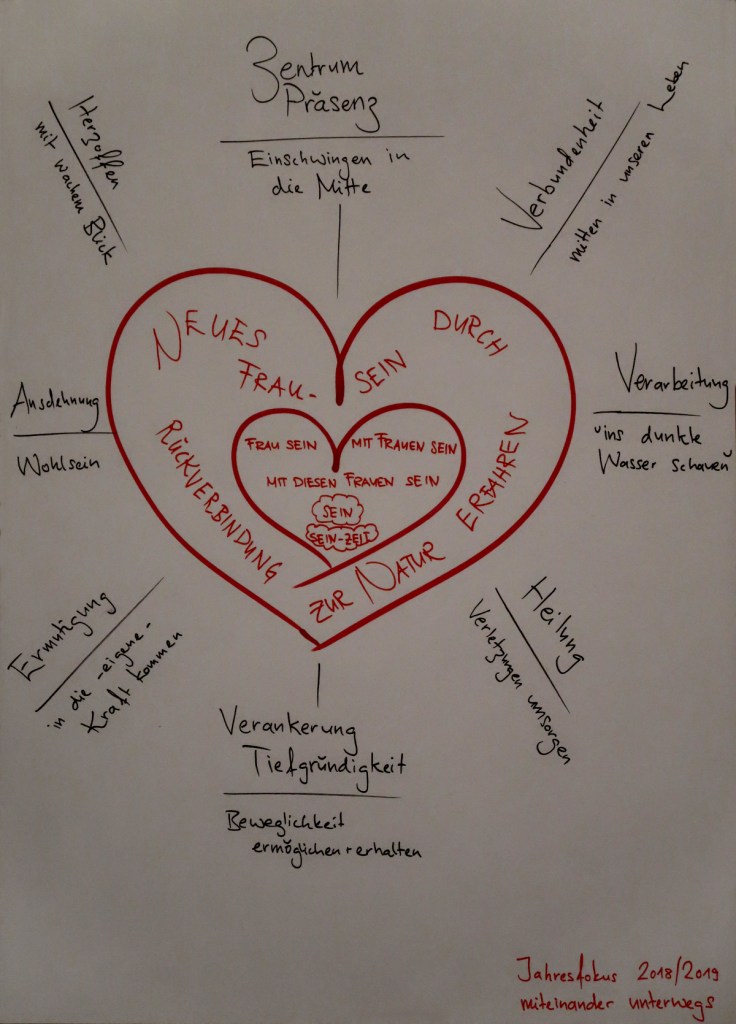 Zentrum
Präsenz
Einschwingen in
die Mitte
Herzoffen
mit wachem Blick
Verbundenheit
mitten in unseren Leben
NEUES
FRAU-
SEIN
DURCH
RÜCKVERBINDUNG
ZUR NATUR
ERFAHREN
FRAU SEIN
MIT FRAUEN SEIN
MIT DIESEN FRAUEN SEIN
SEIN
SEIN-ZEIT
Ausdehnung
Wohlsein
Verarbeitung
"ins dunkle
Wasser schauen"
Ermutigung
in die -eigene-
Kraft kommen
Heilung
Verletzungen umsorgen
Verankerung
Tiefgründigkeit
Beweglichkeit
ermöglichen + erhalten
Jahresfokus 2018/2019
miteinander unterwegs